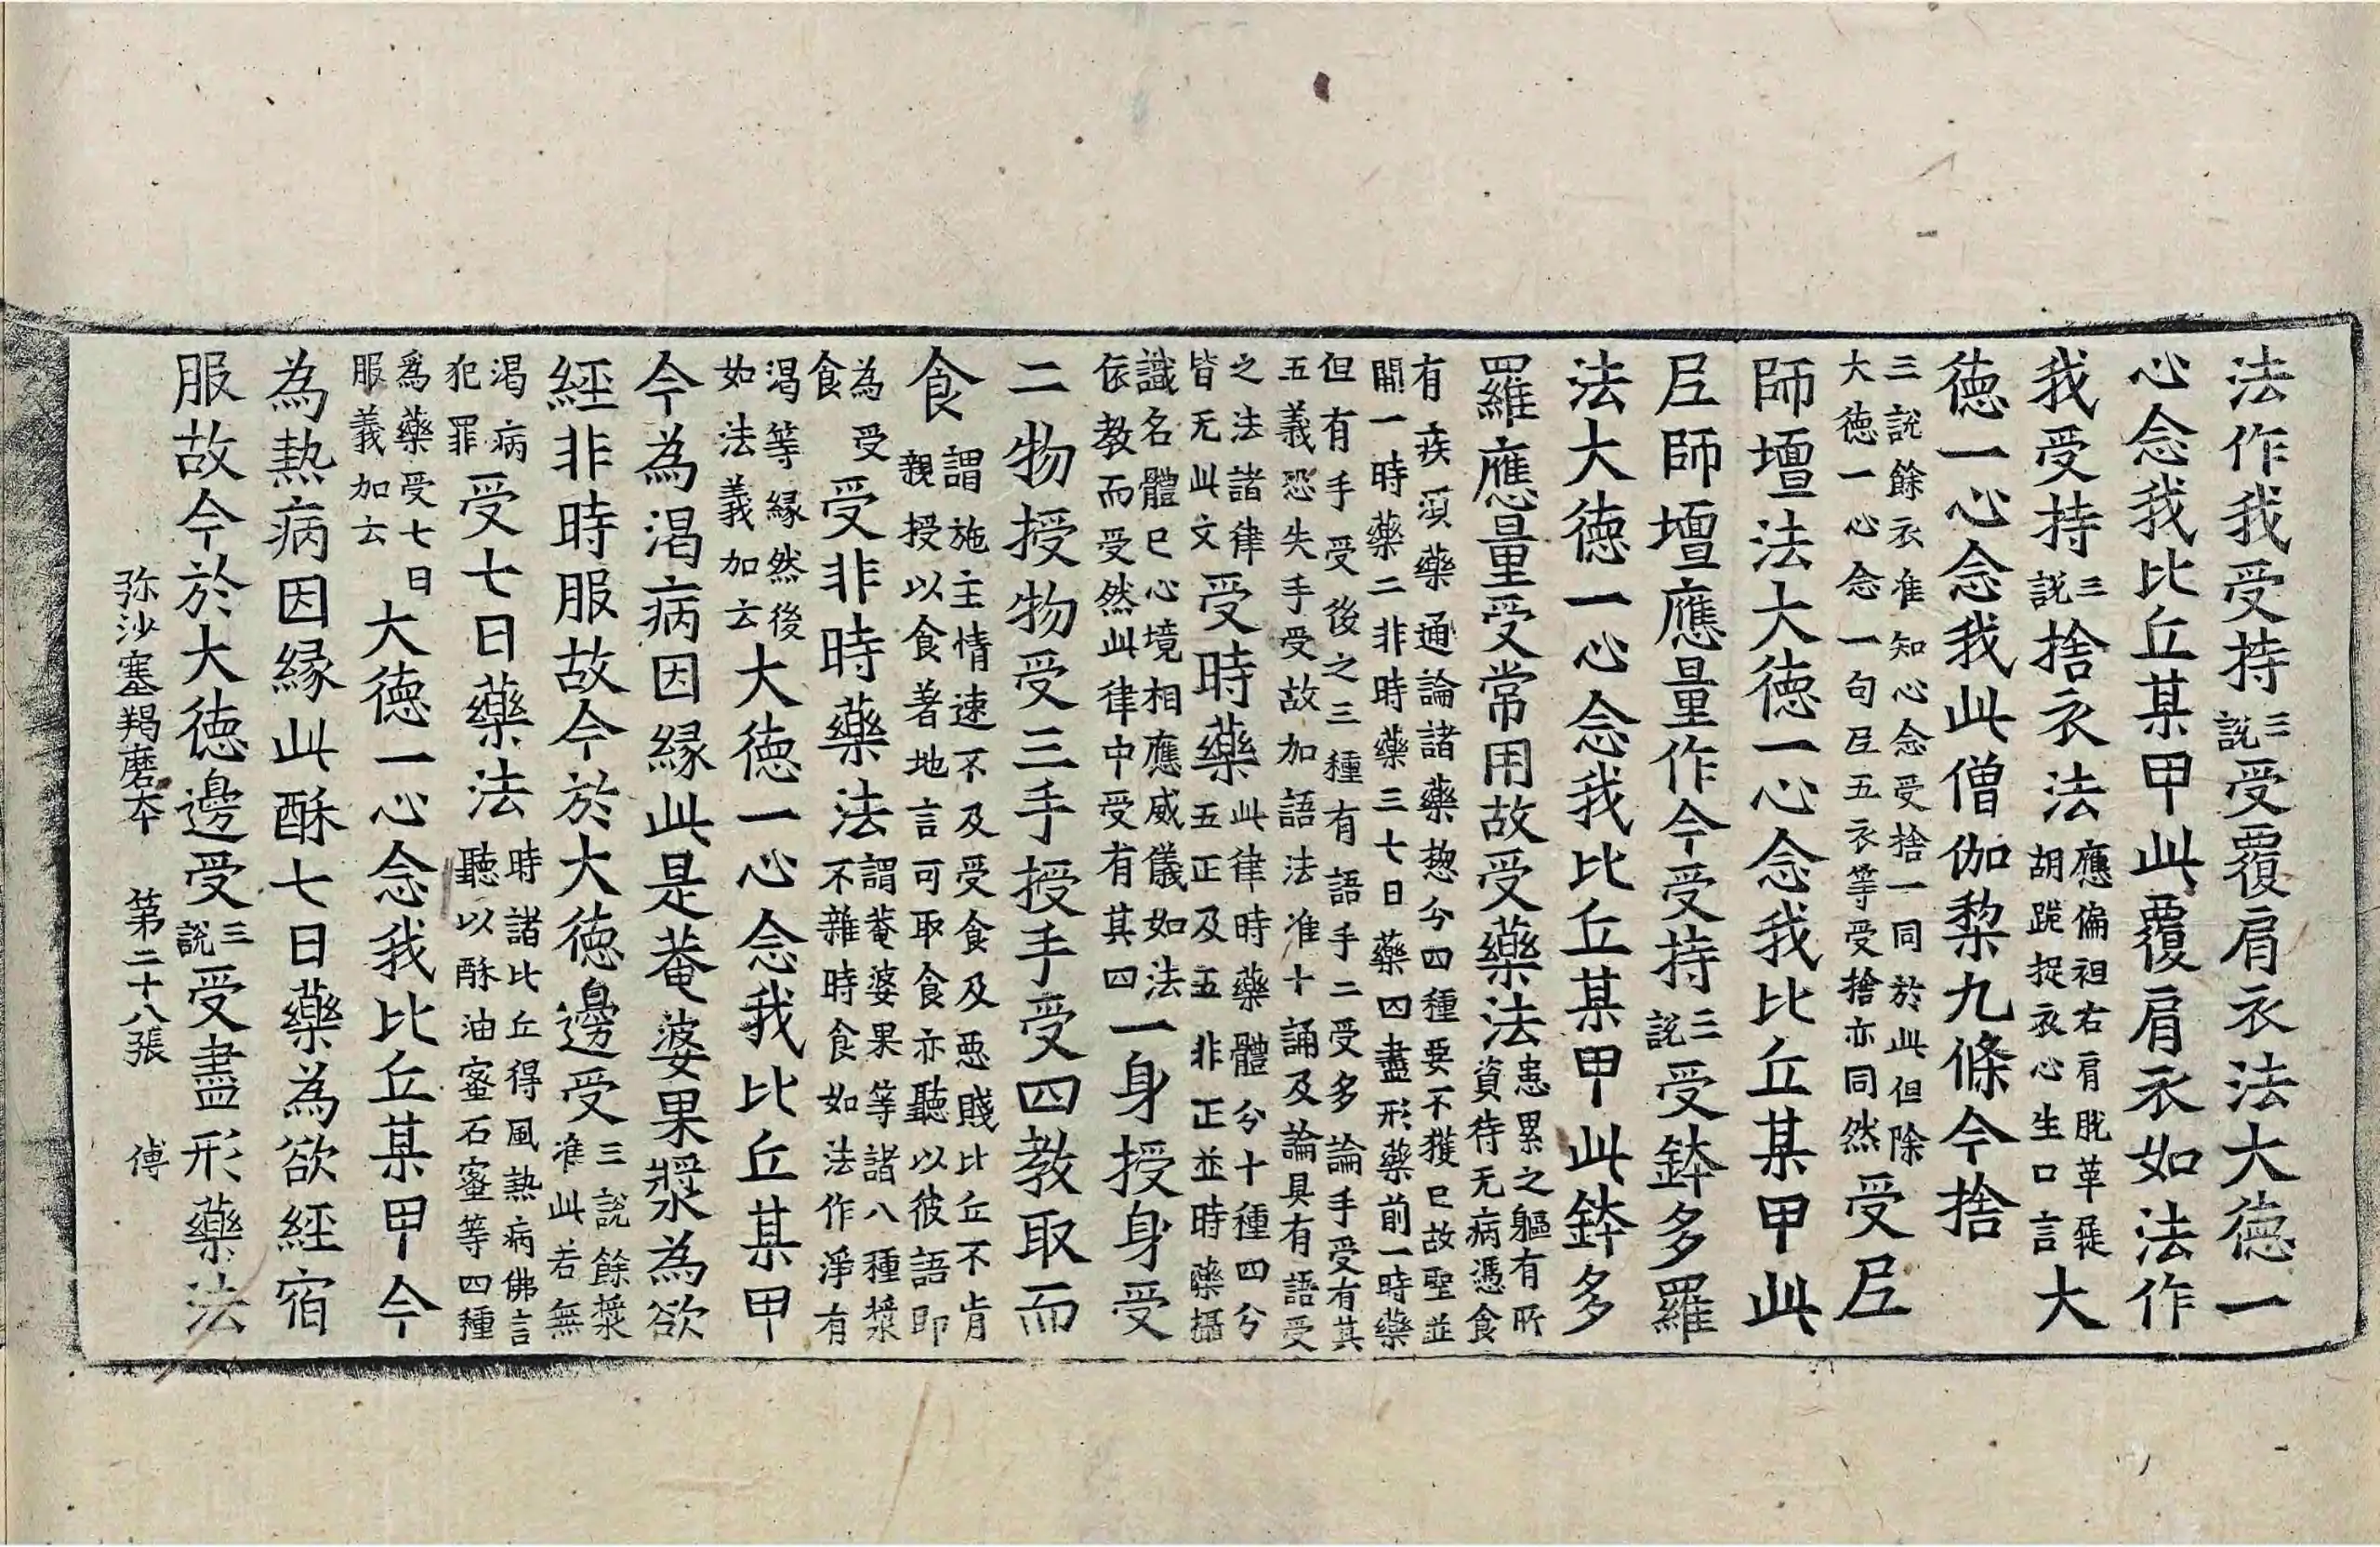 法作我受持三說受覆肩衣法大德一
心念我比丘某甲此覆肩衣如法作
我受持三說捨衣法應偏袒右肩脫革屣胡跪捉衣心生口言大
德一心念我此僧伽棃九條今捨
三說餘衣准知心念受捨一同於此但除大德一心念一句㫷五衣等受捨亦同然受𡰱
師壇法大德一心念我比丘某甲此
𡰱師壇應量作今受持三說受鉢多羅
法大德一心念我比丘某甲此鉢多
羅應量受常用故受藥法患累之軀有所資待无病憑食
有疾須藥通論諸藥惣分四種要不獲已故聖並開一時藥二非時藥三七日藥四盡形藥前一時藥
但有手受後之三種有語手二受多論手受有其五義恐失手受故加語法准十誦及論具有語受
之法諸律皆无此文受時藥此律時藥體分十種四分五正及五非正並時藥攝
識名體已心境相應威儀如法依教而受然此律中受有其四一身授身受
二物授物受三手授手受四教取而
食謂施主情速不及受食及惡賤比丘不肯親授以食著地言可取食亦聽以彼語即
為受食受非時藥法謂菴婆果等諸八種漿不雜時食如法作淨有
渴等緣然後如法義加云大德一心念我比丘某甲
今為渴病因緣此是菴婆果漿為欲
經非時服故今於大德邊受三說餘漿准此若無
渴病犯罪受七日藥法時諸比丘得風熱病佛言聽以酥油蜜石蜜等四種
為藥受七日服義加云大德一心念我比丘某甲今
為熱病因緣此酥七日藥為欲經宿
服故今於大德邊受三說受盡形藥法
弥沙塞羯磨本 第二十八張 傅